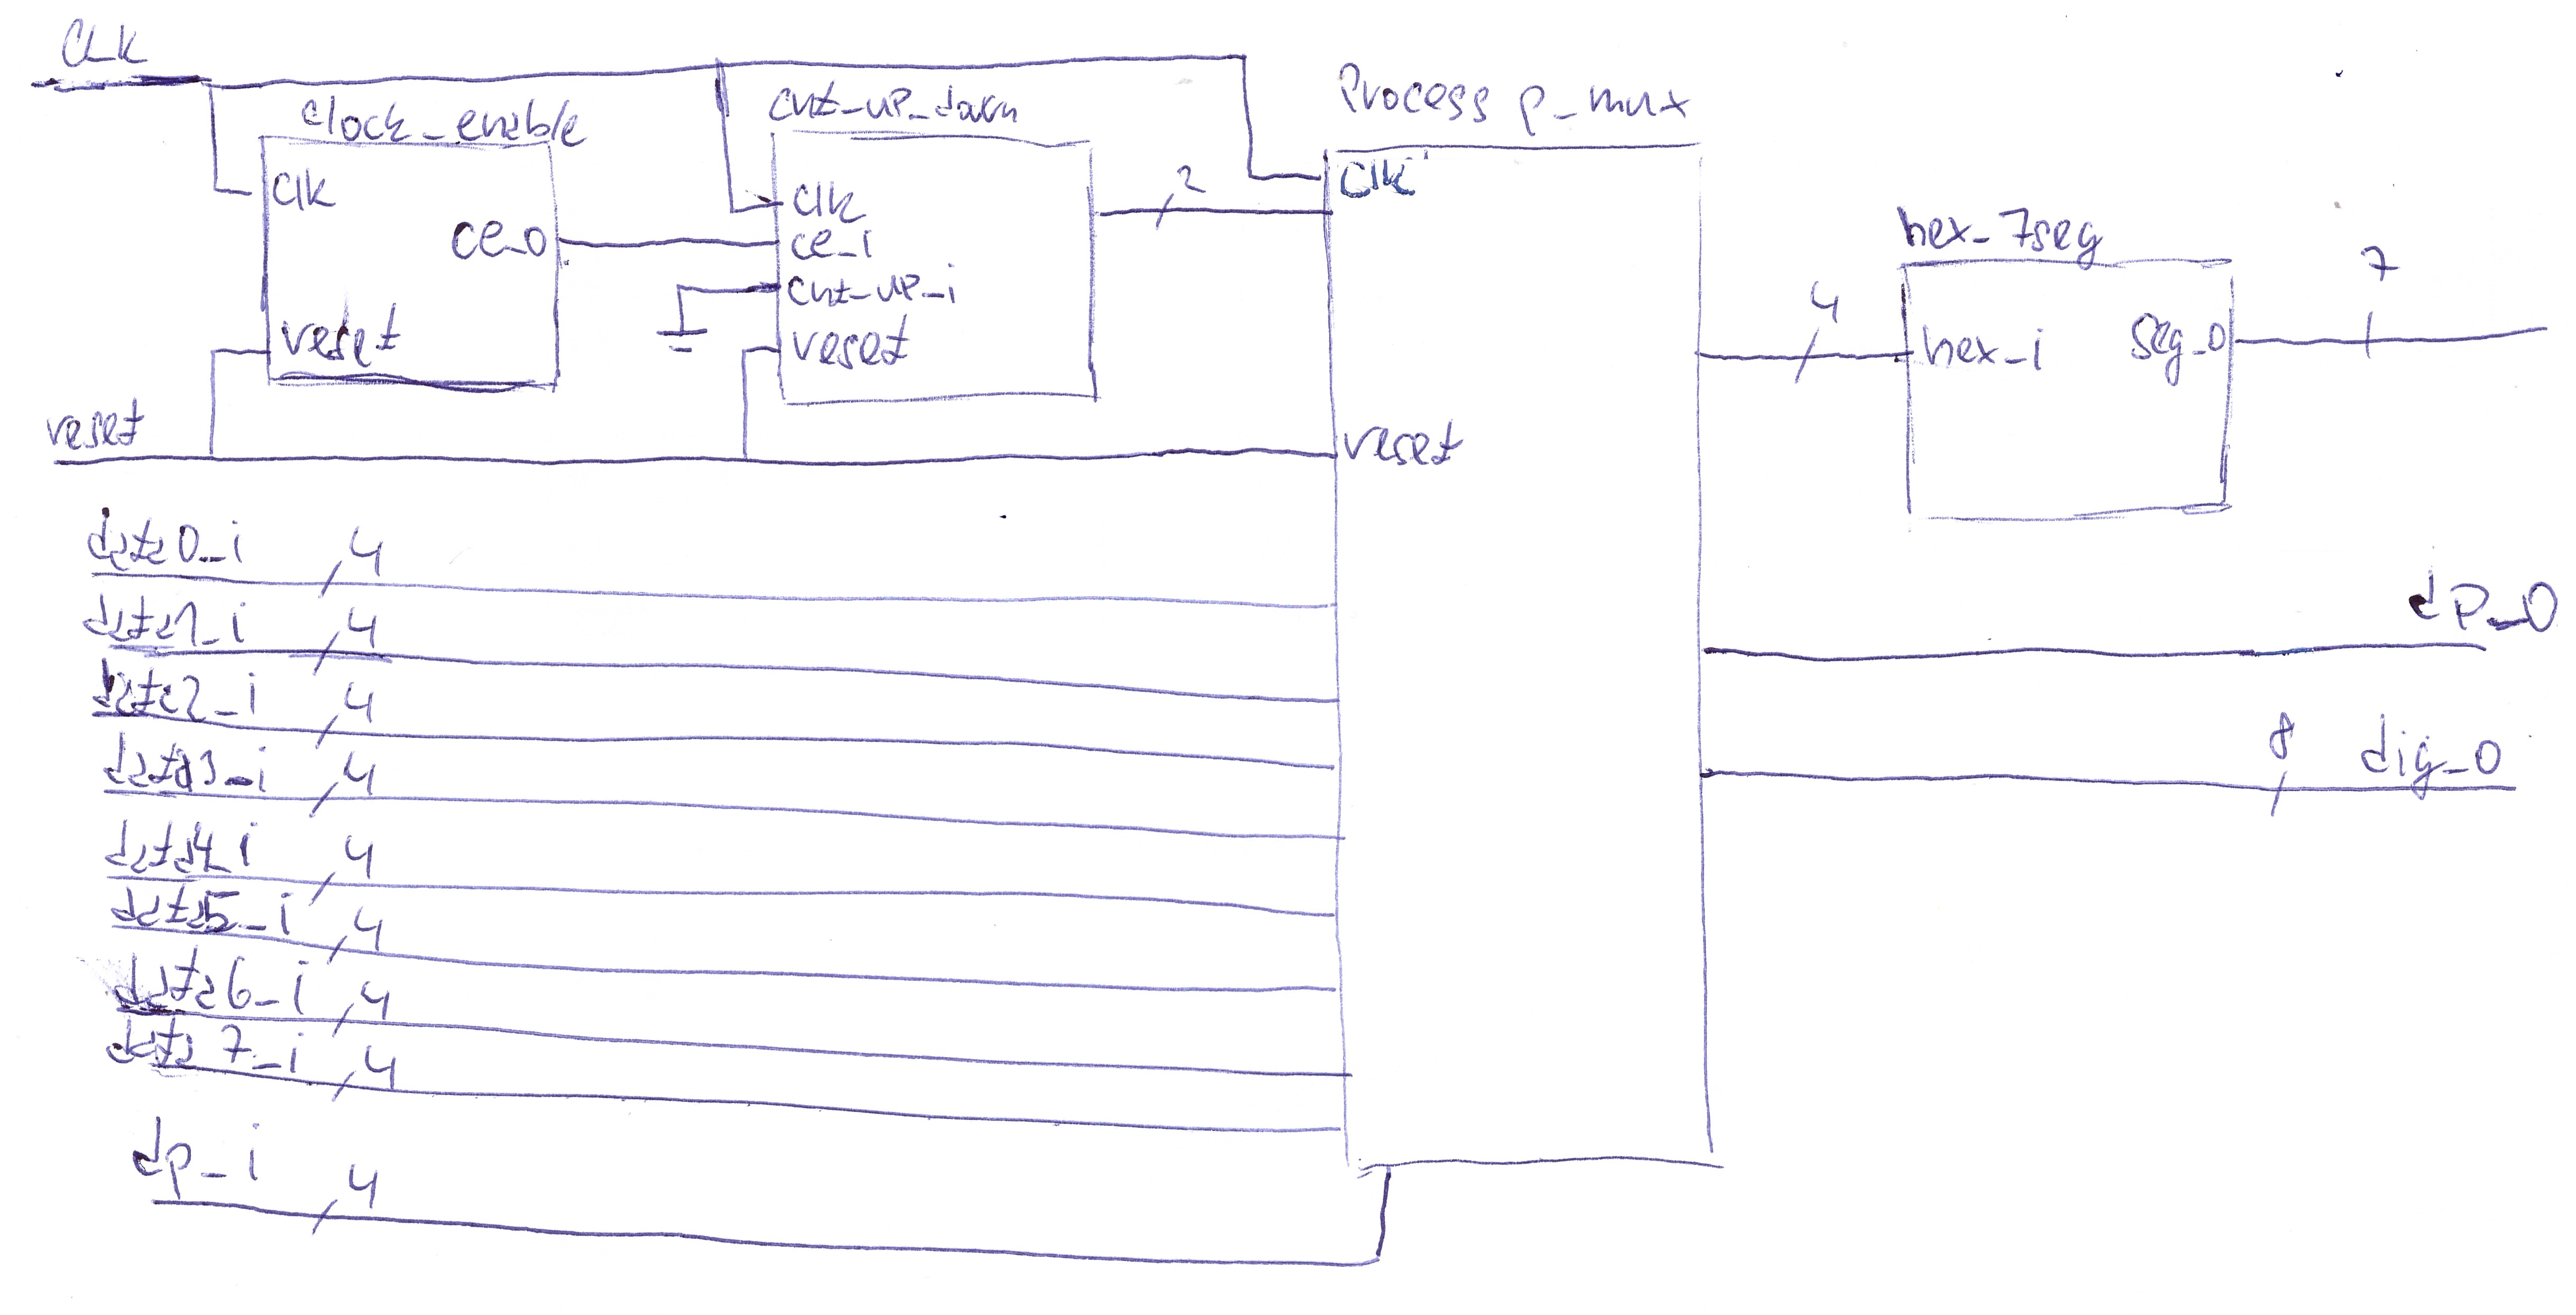 CLK
clock_enable
clk
ce_o
reset
cnt_up_down
clk
ce_i
cnt_up_i
reset
2
Process p_mux
clk
reset
reset
4
hex_7seg
hex_i
seg_o
7
data0_i
4
data1_i
4
data2_i
4
data3_i
4
data4_i
4
data5_i
4
data6_i
4
data7_i
4
dp_i
4
dp_o
8
dig_o